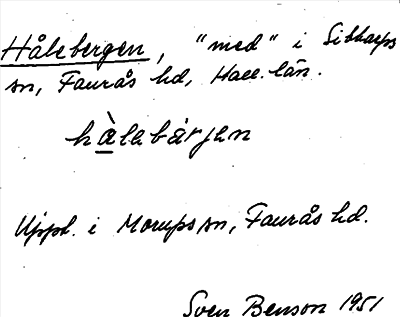 Hålebergen, "med" i Sibbarps
sn, Faurås hd, Hall. län.
hàlebárjen
Uppl. i Morups sn, Faurås hd.
Sven Benson 1951